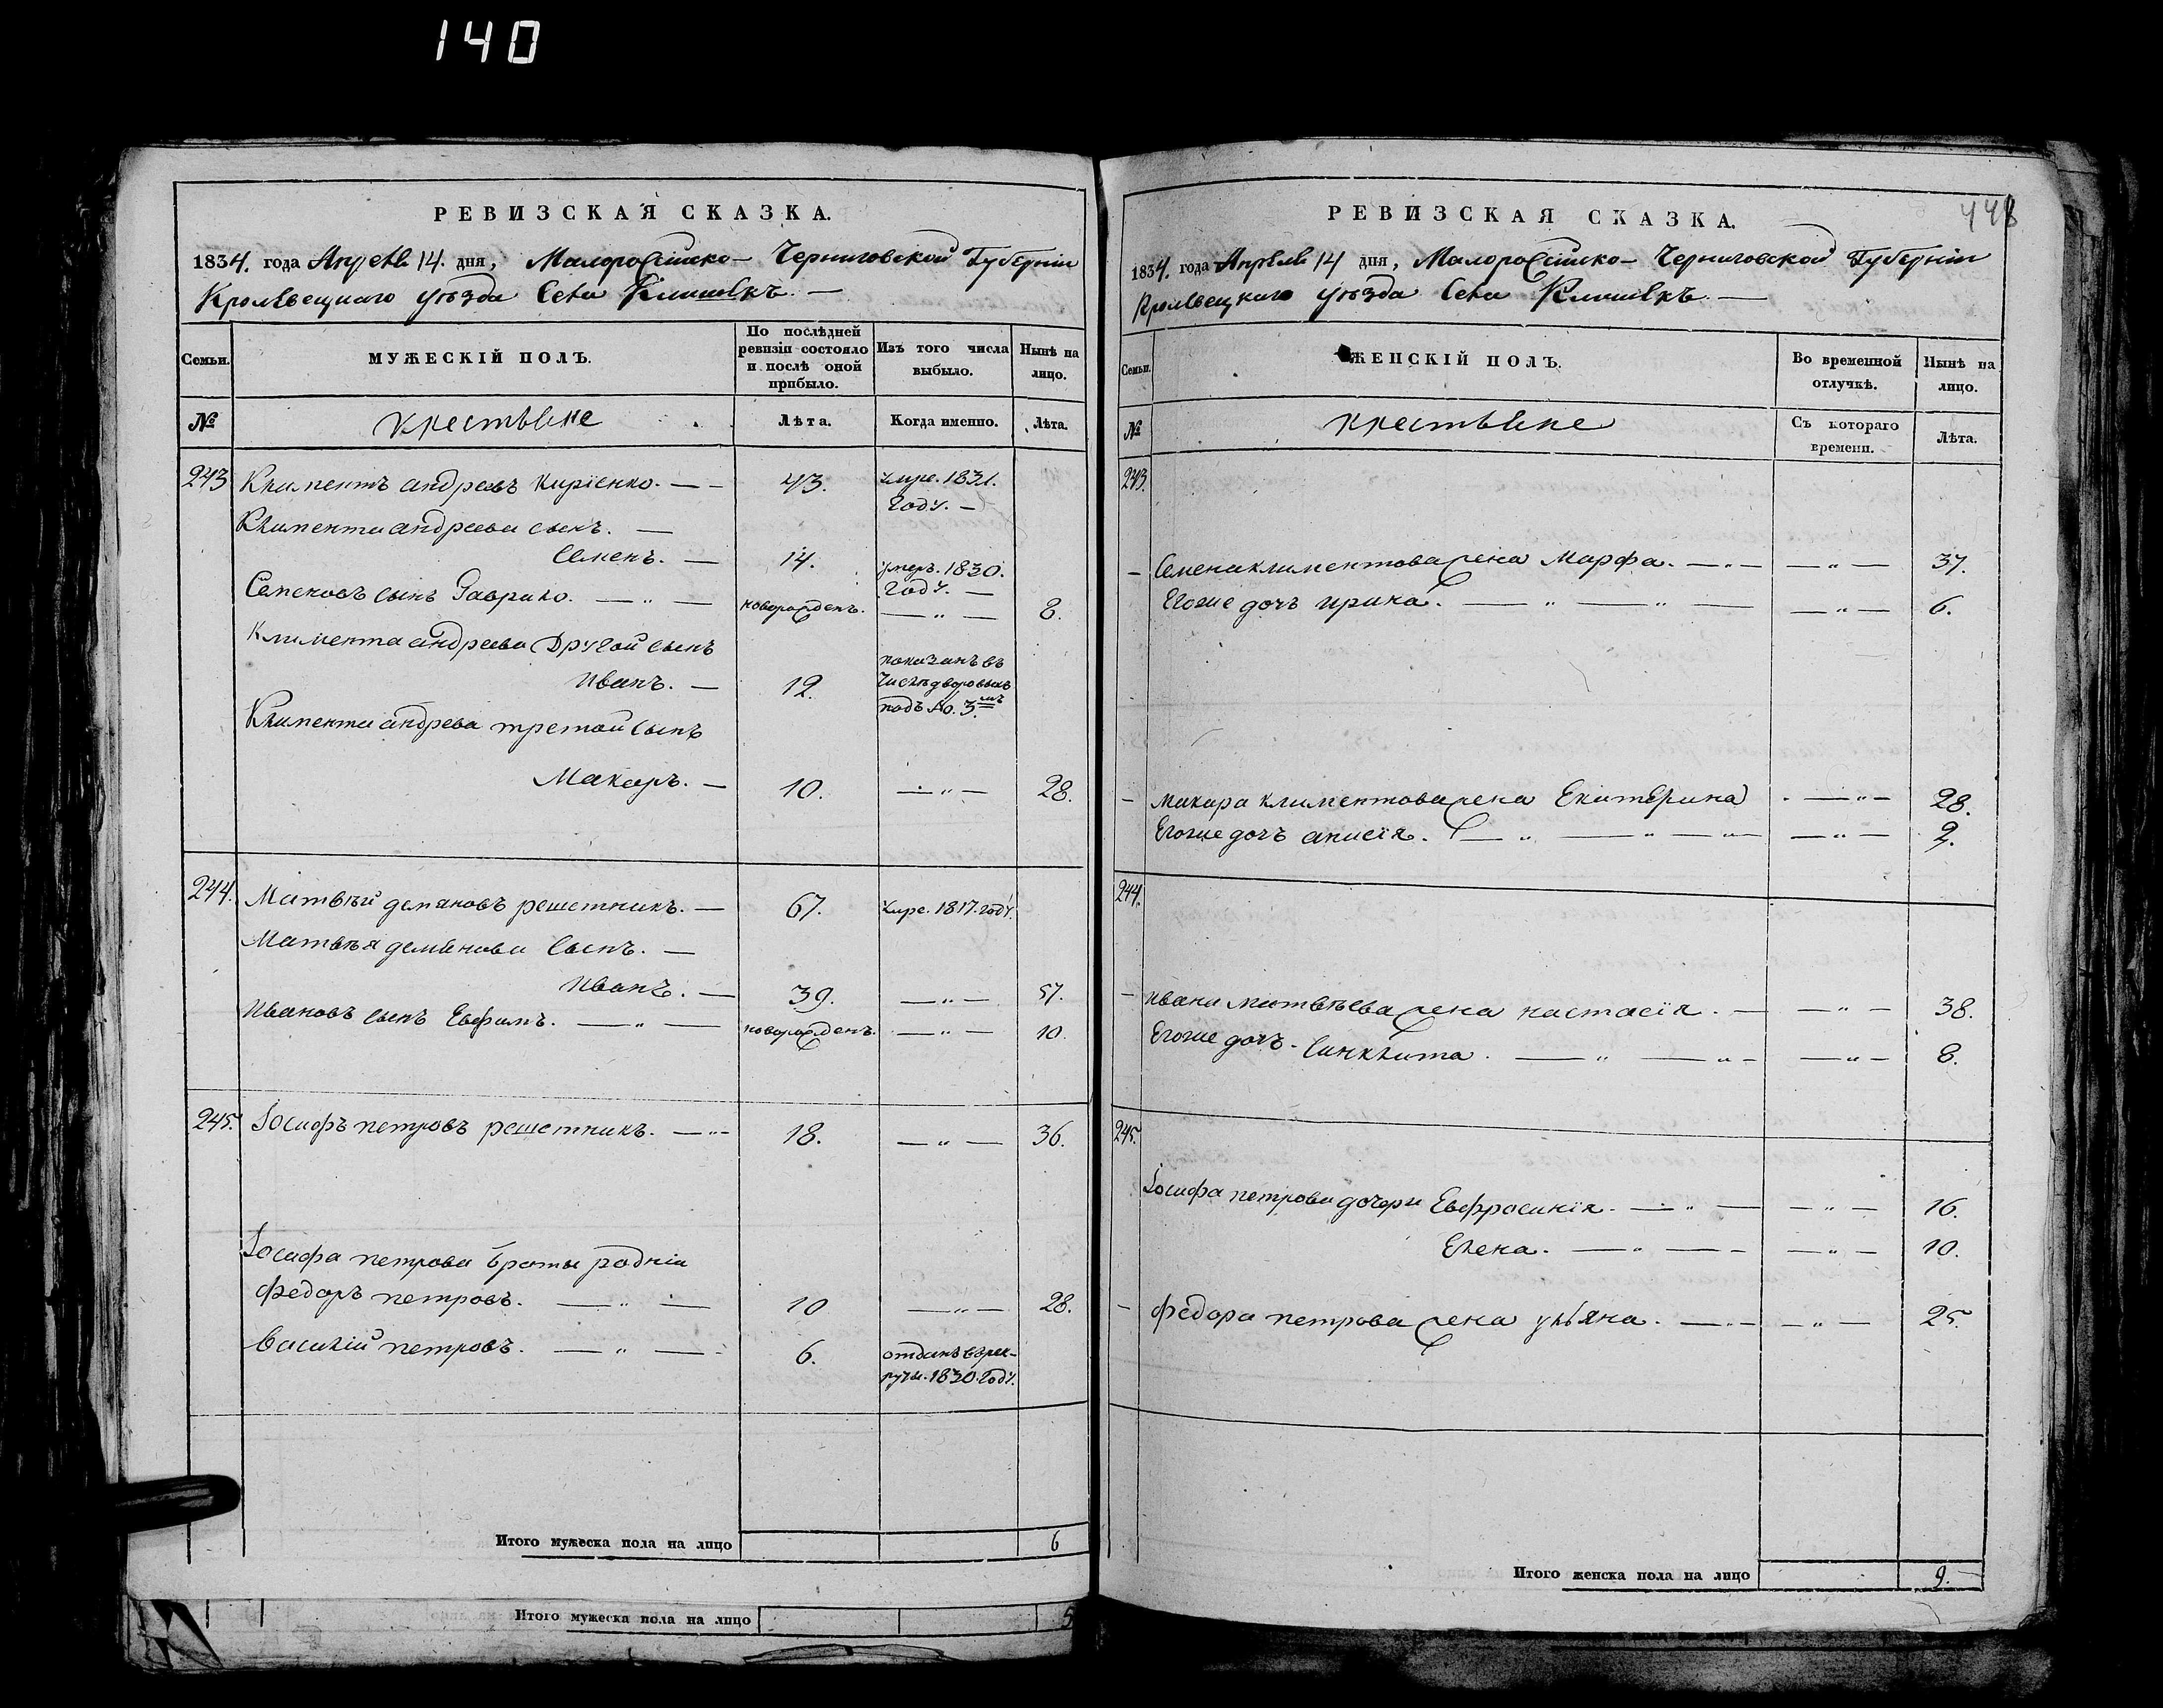 140
РЕВИЗСКАЯ СКАЗКА.
1834. года Апреля 14. дня, Малоросiйско-Черниговской Губернiи
Кролевецкаго уѣзда Села Клишокъ. —
Семьи.
МУЖЕСКIЙ ПОЛЪ.
По послѣдней ревизiи состояло и послѣ оной прибыло.
Изъ того числа выбыло.
Нынѣ на лицо.
№
крестьяне
Лѣта.
Когда именно.
Лѣта.
243 Климентъ андреевъ Кирiенко. — — 43. умре. 1831. году. —
Климента андреева сынъ. —
Семенъ. — 14. умеръ. 1830. году. —
Семеновъ сынъ Гаврило. — „ — новорожденъ. — „ — 8.
Климента андреева другой сынъ
Иванъ. — 12. показанъ въ числѣ дворовыхъ подъ №. 3.мъ
Климента андреева третой сынъ
Макаръ. — 10. — „ — 28.
244. Матвѣй демяновъ решетникъ. — 67. умре. 1817. году.
Матвѣя демянова сынъ. —
Иванъ. — 39. — „ — 57.
Ивановъ сынъ Евфимъ. — „ — новорожденъ. — „ — 10.
245. Iосифъ петровъ решетникъ. — „ — 18. — „ — 36.
Iосифа петрова браты роднiи
Федоръ петровъ. — „ — 10 — „ — 28.
Василiй петровъ. — „ — 6. отданъ въ рек-
руты. 1830. году.
Итого мужеска пола на лицо 6
Итого мужеска пола на лицо 5
448
РЕВИЗСКАЯ СКАЗКА.
1834. года Апреля 14 дня, Малоросiйско-Черниговской Губернiи
Кролевецкаго уѣзда Села Клишокъ. —
Семьи.
ЖЕНСКIЙ ПОЛЪ.
Во временной отлучкѣ.
Нынѣ на лицо.
№
крестьяне
Съ котораго времени.
Лѣта.
243.
— Семена климентова жена Марфа. — „ — — „ — 37.
Егоже дочъ ирина. — „ — „ — — „ — 6.
— макара климентова жена Екатерина — „ — 28.
Егоже дочъ анисiя. — „ — „ — „ — — „ — 2.
244.
— ивана матвѣева жена настасiя. — — „ — 38.
Егоже дочъ - Синклита. — „ — „ — — „ — 8.
245.
Iосифа петрова дочери Евфросинiя. — „ — — „ — 16.
Елена. — „ — — — „ — 10.
— федора петрова жена ульяна. — „ — — „ — 25.
Итого женска пола на лицо 9.